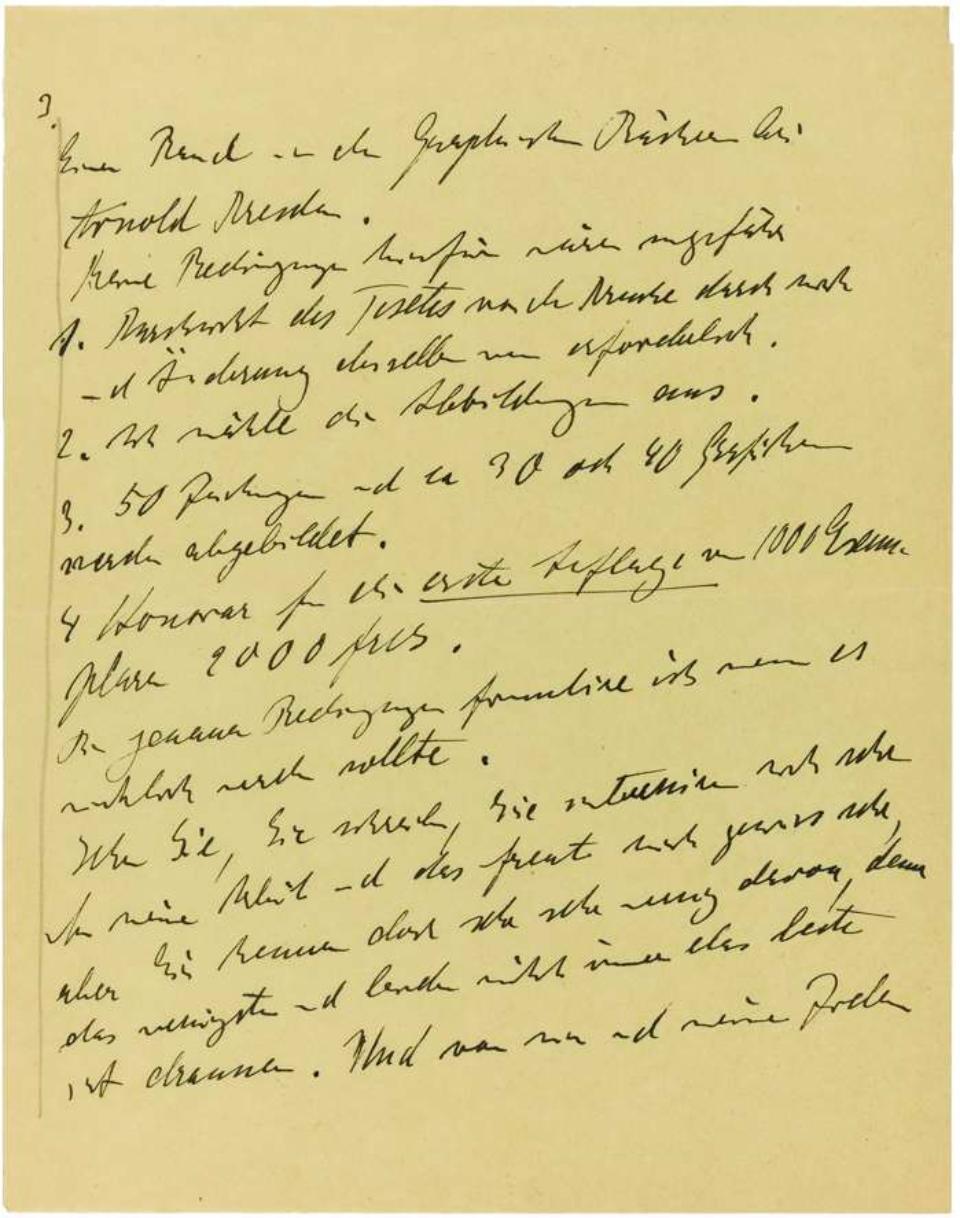 3.
einen Band in den Graphischen Büchern bei
Arnold Dresden.
Meine Bedingungen hierfür wären ungefähr
1. Durchsicht des Textes vor dem Drucke durch mich
und Änderung desselben wenn erforderlich.
2. Ich wähle die Abbildungen aus.
3. 50 Zeichnungen und ca 30 oder 40 Grafiken
werden abgebildet.
4 Honorar für die erste Auflage von 1000 Exem-
plaren 2000 frcs.
Die genauen Bedingungen formuliere ich wenn es
wirklich werden sollte.
Sehen Sie, Sie schreiben, Sie interessieren sich sehr
für meine Arbeit und das freut mich gewiss sehr,
aber Sie kennen doch sehr sehr wenig davon, denn
das wenigste und leider nicht immer das beste
ist draussen. Und von mir und meinen